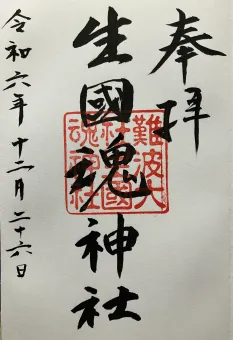 奉拝
生國魂神社
令和六年十二月二十六日
難波大
社生國
魂神社